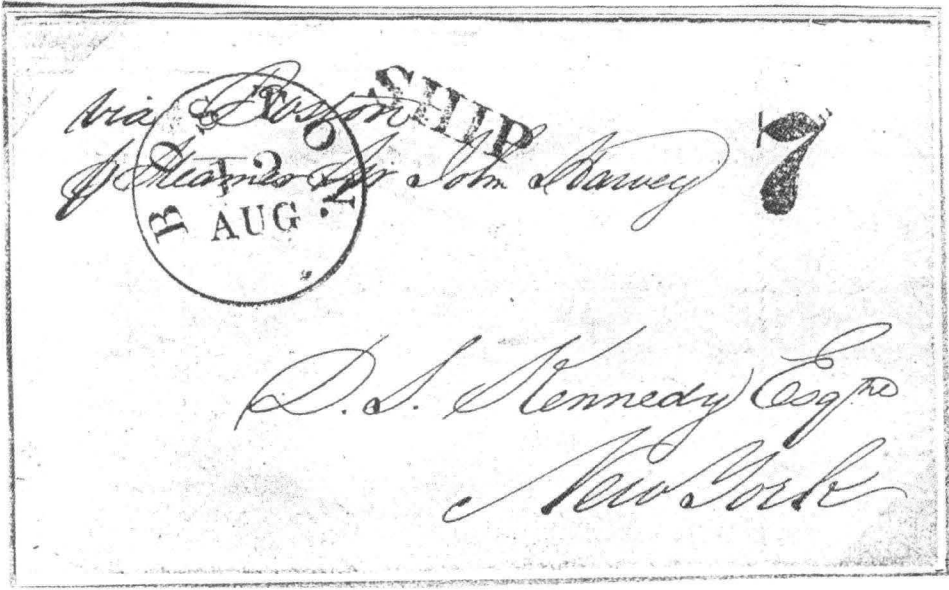 via Boston
p Steamer Sir John Harvey
SHIP
7
BOSTON
12
AUG.
D. S. Kennedy Esqre
New York